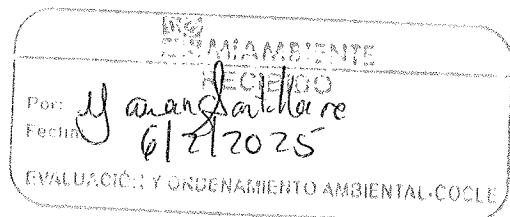 MIAMBIENTE
RECIBIDO
Por:
Fecha
6/2/2025
EVALUACIÓN Y ORDENAMIENTO AMBIENTAL-COCLE